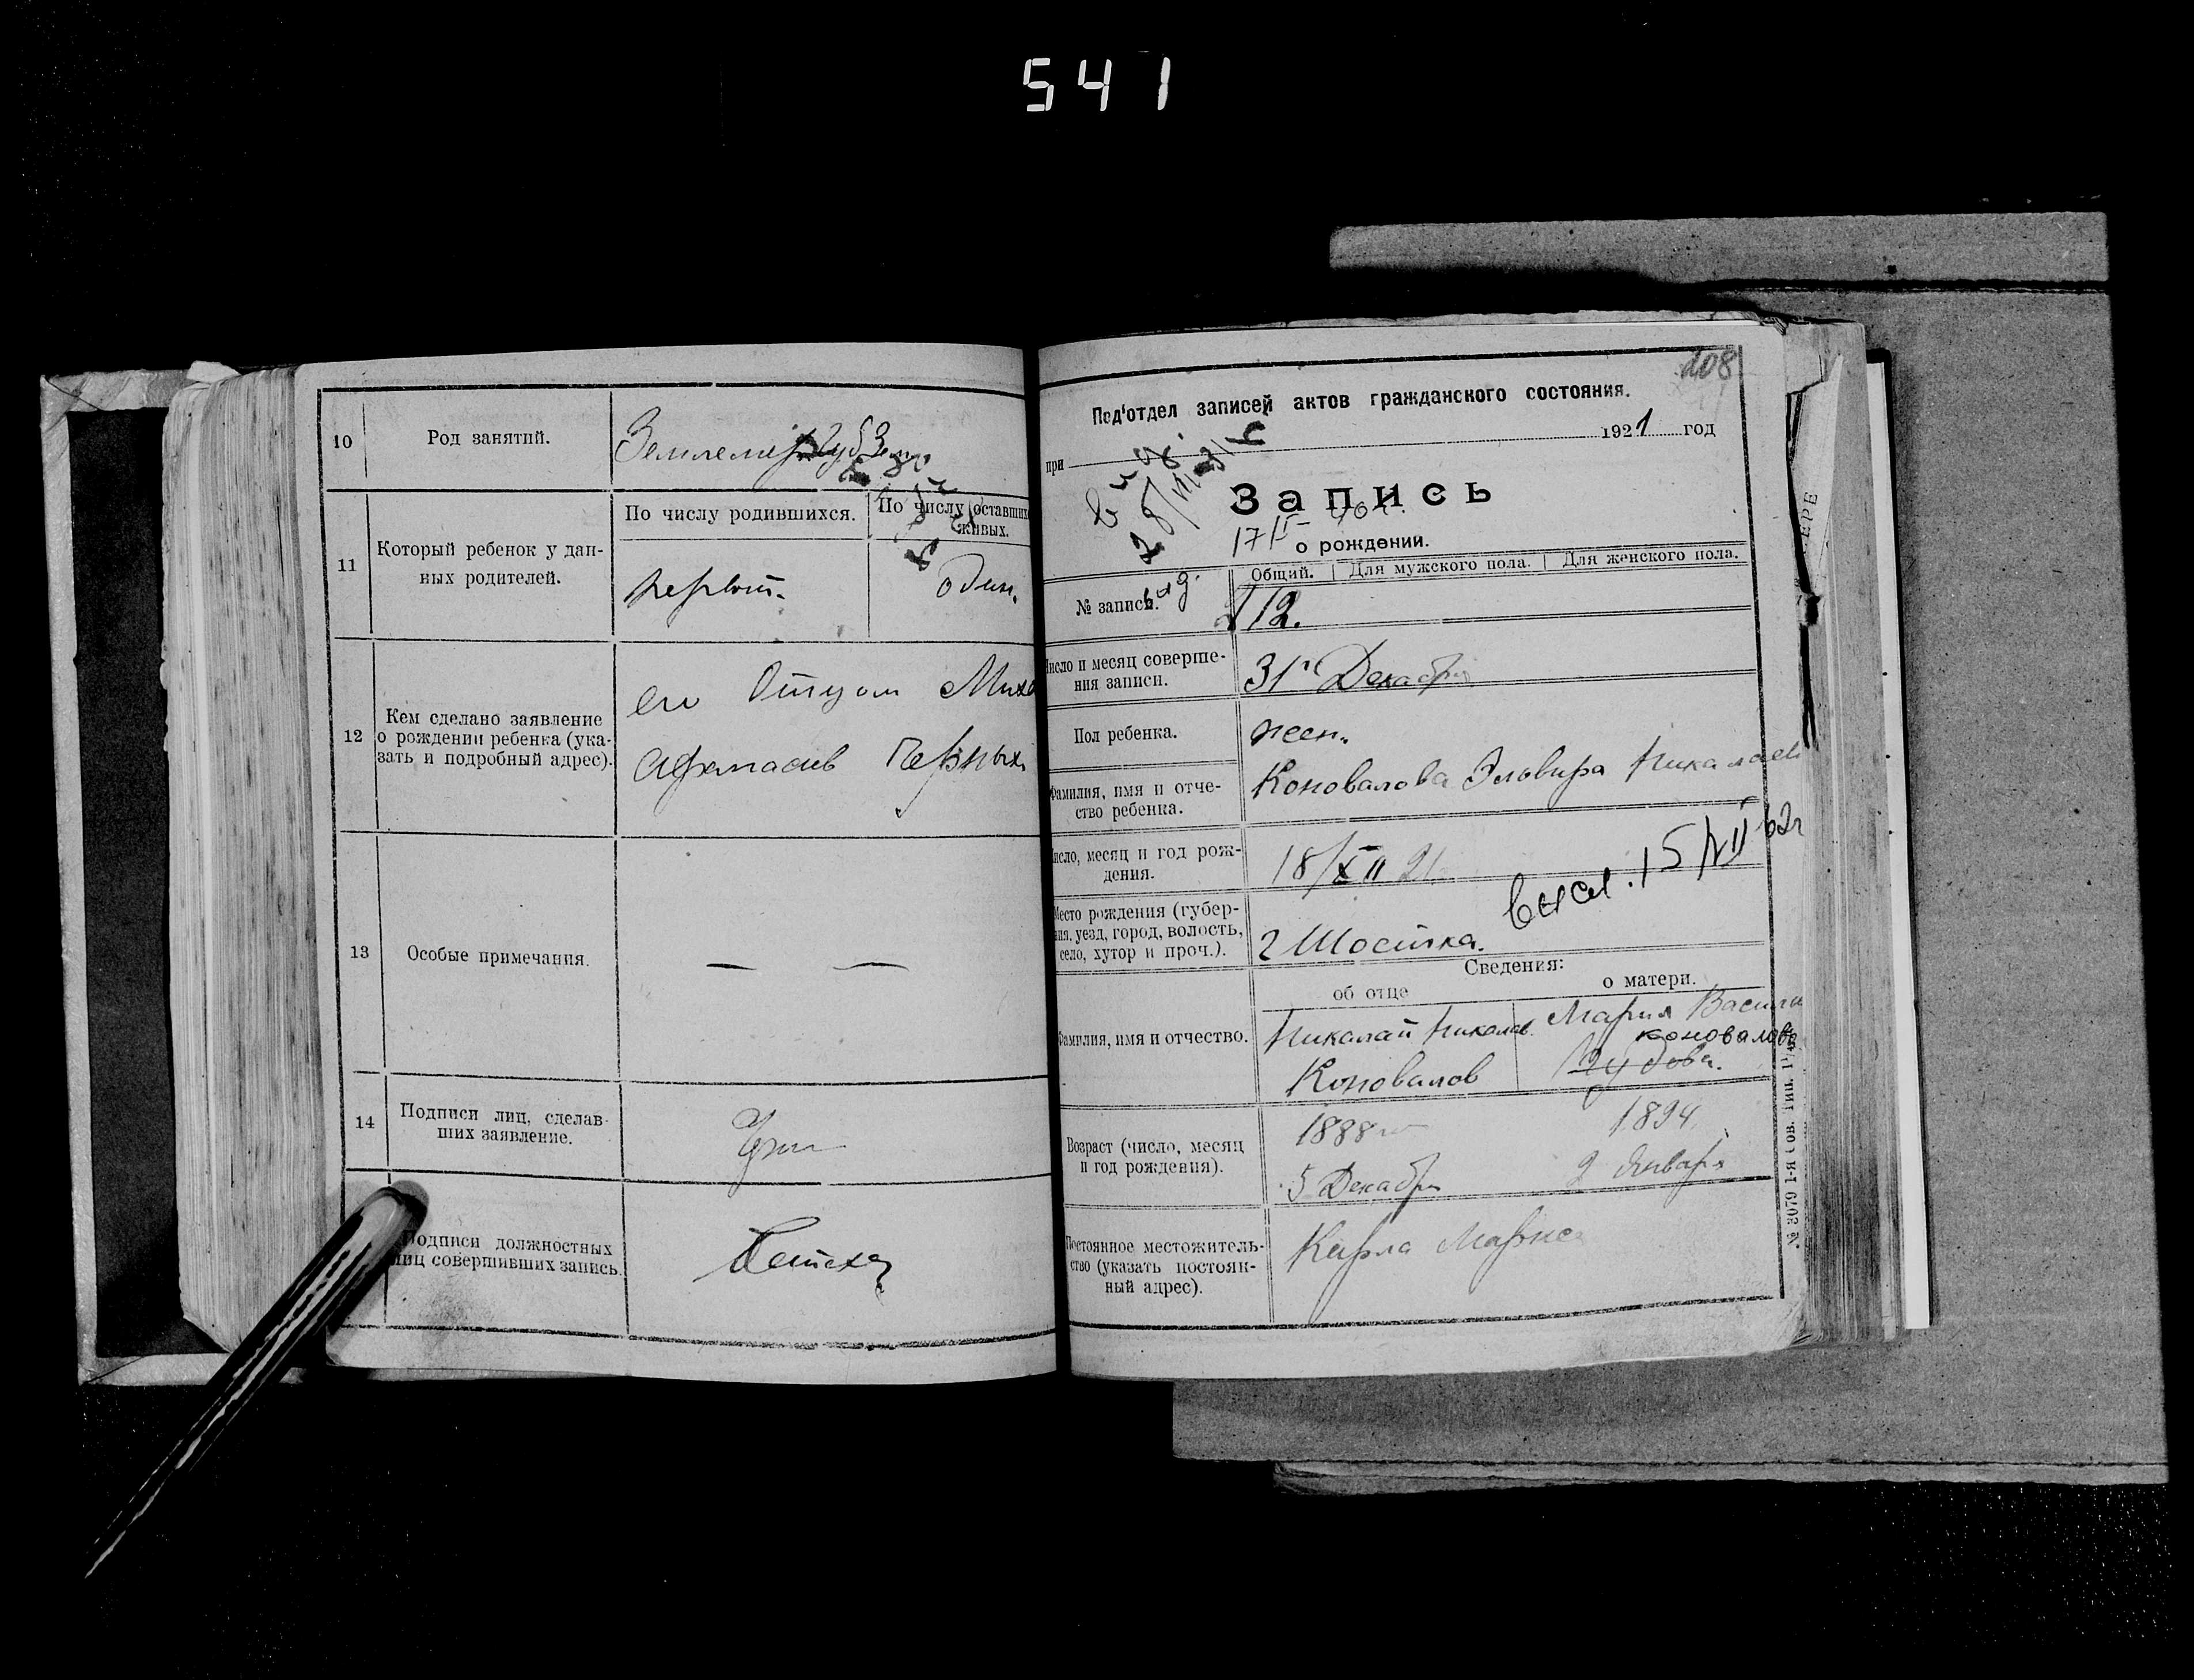 541
10
Род занятий.
Землемер
11
Который ребенок у дан-
ных родителей.
По числу родившихся.
По числу оставших
живых.
первый.
один.
12
Кем сделано заявление
о рождении ребенка (ука-
зать и подробный адрес).
его Отцом Миха
Черных
13
Особые примечания.
— —
14
Подписи лиц, сделав-
ших заявление.
Подписи должностных
лиц совершивших запись.
208
Под'отдел записей актов гражданского состояния.
при
1921 год
Запись
о рождении.
Общий. Для мужского пола. Для женского пола.
№ записи.
212.
Число и месяц соверше-
ния записи.
31 Декабря
Пол ребенка.
жен.
Фамилия, имя и отче-
ство ребенка.
Коновалова Эльвира Николаев
Число, месяц и год рож-
дения.
18/XII 21
Место рождения (губер-
ния, уезд, город, волость,
село, хутор и проч.).
г Шостка.
Сведения:
об отце
о матери.
Фамилия, имя и отчество.
Николай Николаев.
Коновалов
Мария Васили
Коновалова
Возраст (число, месяц
и год рождения).
1888
5 Декабря
1894
9 Января
Постоянное местожитель-
ство (указать постоян-
ный адрес).
Карла Маркса
№ 3079 1-я Сов. Тип.